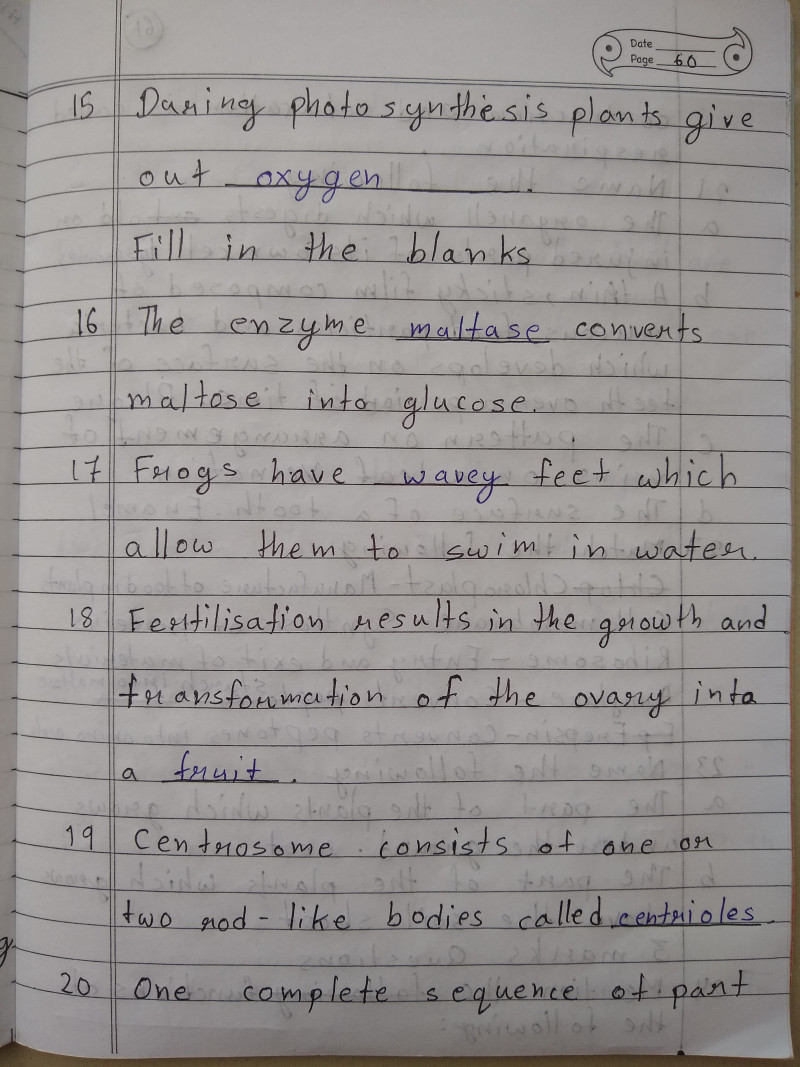 Date
Page 60
15 During photosynthesis plants give
out oxygen.
Fill in the blanks
16 The enzyme maltase converts
maltose into glucose.
17 Frogs have wavey feet which
allow them to swim in water.
18 Fertilisation results in the growth and
transformation of the ovary into
a fruit.
19 Centrosome consists of one or
two rod-like bodies called centrioles.
20 One complete sequence of part